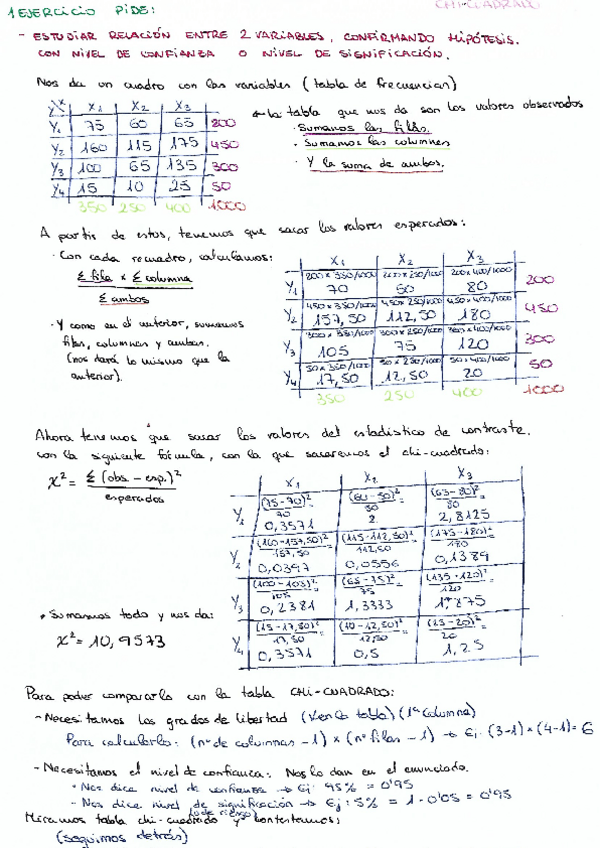 CHI-CUADRADO
1 EJERCICIO PIDE:
- ESTUDIAR RELACIÓN ENTRE 2 VARIABLES, CONFIRMANDO HIPÓTESIS.
CON NIVEL DE CONFIANZA O NIVEL DE SIGNIFICACIÓN.
Nos da un cuadro con las variables (tabla de frecuencias)
Y X X1 X2 X3
Y1 75 60 65 200
Y2 160 115 175 450
Y3 100 65 135 300
Y4 15 10 25 50
350 250 400 1000
← la tabla que nos da son los valores observados
· Sumamos las filas.
· Sumamos las columnas
· Y la suma de ambos.
A partir de estos, tenemos que sacar los valores esperados:
· Con cada recuadro, calculamos:
Σ fila x Σ columna
Σ ambos
· Y como en el anterior, sumamos
filas, columnas y ambas.
(nos dará lo mismo que la
anterior).
X1 X2 X3
200x350/1000 200x250/1000 200x400/1000
Y1 70 50 80 200
450x350/1000 450x250/1000 450x400/1000
Y2 157,50 112,50 180 450
300x350/1000 300x250/1000 300x400/1000
Y3 105 75 120 300
50x350/1000 50x250/1000 50x400/1000
Y4 17,50 12,50 20 50
350 250 400 1000
Ahora tenemos que sacar los valores del estadístico de contraste.
con la siguiente fórmula, con la que sacaremos el chi-cuadrado:
X² = Σ (obs. - esp.)²
esperados
X1 X2 X3
(75-70)² = (60-50)² = (65-80)² =
70 50 80
Y1 0,3571 2 2,8125
(160-157,50)² = (115-112,50)² = (175-180)² =
157,50 112,50 180
Y2 0,0397 0,0556 0,1389
(100-105)² = (65-75)² = (135-120)² =
105 75 120
Y3 0,2381 1,3333 1,875
(15-17,50)² = (10-12,50)² = (25-20)² =
17,50 12,50 20
Y4 0,3571 0,5 1,25
* Sumamos todo y nos da:
X² = 10,9573
Para poder compararlo con la tabla CHI-CUADRADO:
- Necesitamos los grados de libertad (Ver la tabla) (1ª Columna)
Para calcularlo: (nº de columnas - 1) x (nº filas - 1) → Ej: (3-1) x (4-1) = 6
- Necesitamos el nivel de confianza: Nos lo dan en el enunciado.
· Nos dice nivel de confianza → Ej: 95% = 0'95
· Nos dice nivel de significación → Ej: 5% = 1 - 0'05 = 0'95
(o de riesgo)
Miramos tabla chi-cuadrado y contestamos:
(seguimos detrás)